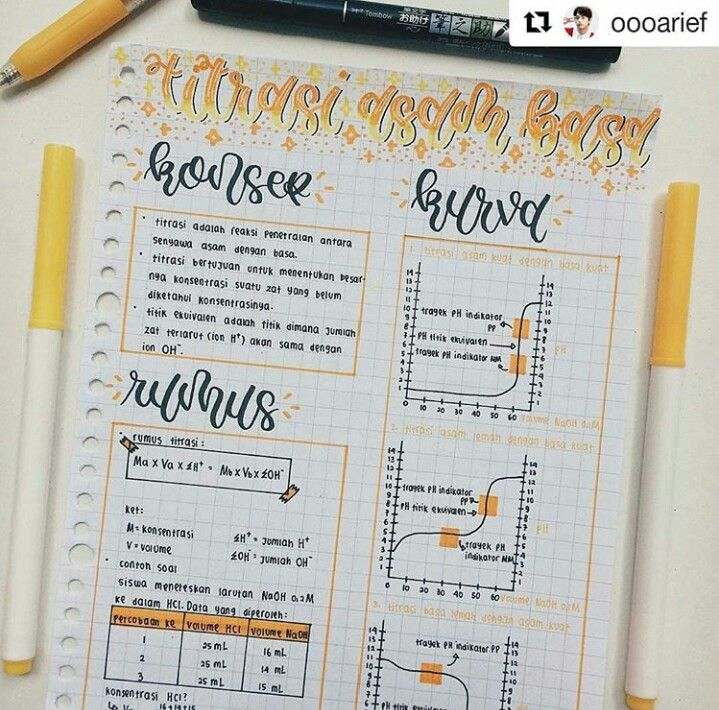 oooarief
Tombow お助け 幸之助
titrasi asam basa
konsep
• titrasi adalah reaksi penetralan antara
senyawa asam dengan basa.
• titrasi bertujuan untuk menentukan besar-
nya konsentrasi suatu zat yang belum
diketahui konsentrasinya.
• titik ekuivalen adalah titik dimana jumlah
zat terlarut (ion H⁺) akan sama dengan
ion OH⁻.
rumus
• rumus titrasi:
Ma x Va x ΣH⁺ = Mb x Vb x ΣOH⁻
ket:
M = konsentrasi ΣH⁺ = jumlah H⁺
V = volume ΣOH⁻ = jumlah OH⁻
• contoh soal
siswa meneteskan larutan NaOH 0,2M
ke dalam HCl. Data yang diperoleh:
percobaan ke volume HCl volume NaOH
1 25 mL 16 mL
2 25 mL 14 mL
3 25 mL 15 mL
konsentrasi HCl?
kurva
1. titrasi asam kuat dengan basa kuat
14
13
12
11
10
9
8
7
6
5
4
3
2
1
trayek pH indikator
PP
pH titik ekuivalen
trayek pH indikator MM
pH
0 10 20 30 40 50 60
volume NaOH 0,1M
2. titrasi asam lemah dengan basa kuat
14
13
12
11
10
9
8
7
6
5
4
3
2
1
trayek pH indikator
PP
pH titik ekuivalen
trayek pH
indikator MM
pH
0 10 20 30 40 50 60
volume NaOH 0,1M
3. titrasi basa lemah dengan asam kuat
14
13
12
11
10
9
8
7
6
trayek pH indikator PP
pH titik